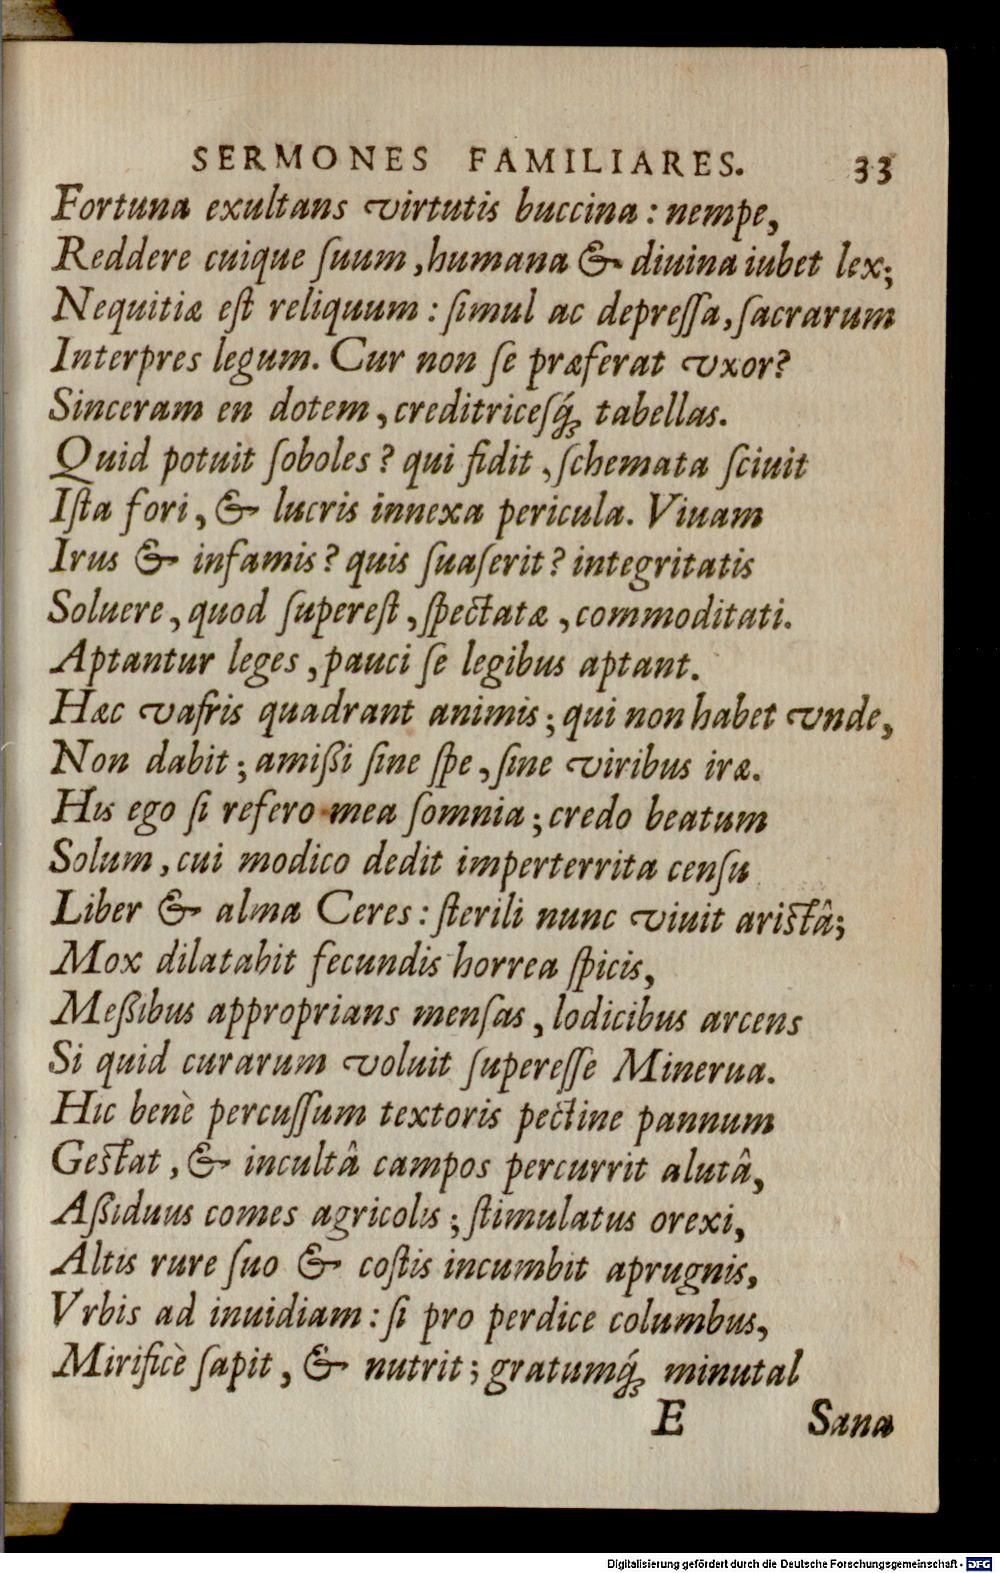 SERMONES FAMILIARES. 33
Fortuna exultans virtutis buccina : nempe,
Reddere cuique ſuum, humana & diuina iubet lex;
Nequitiæ eſt reliquum : ſimul ac depreſſa, ſacrarum
Interpres legum. Cur non ſe præferat vxor?
Sinceram en dotem, creditriceſq́; tabellas.
Quid potuit ſoboles? qui fidit, ſchemata ſciuit
Iſta fori, & lucris innexa pericula. Viuam
Irus & infamis? quis ſuaſerit? integritatis
Soluere, quod ſupereſt, ſpectatæ, commoditati.
Aptantur leges, pauci ſe legibus aptant.
Hæc vafris quadrant animis; qui non habet vnde,
Non dabit; amißi ſine ſpe, ſine viribus iræ.
His ego ſi refero mea ſomnia; credo beatum
Solum, cui modico dedit imperterrita cenſu
Liber & alma Ceres : ſterili nunc viuit ariſtâ;
Mox dilatabit fecundis horrea ſpicis,
Meßibus approprians menſas, lodicibus arcens
Si quid curarum voluit ſupereſſe Minerua.
Hic benè percuſſum textoris pectine pannum
Geſtat, & incultâ campos percurrit alutâ,
Aßiduus comes agricolis; ſtimulatus orexi,
Altis rure ſuo & coſtis incumbit aprugnis,
Vrbis ad inuidiam : ſi pro perdice columbus,
Mirificè ſapit, & nutrit; gratumq́; minutal
E Sana
Digitalisierung gefördert durch die Deutsche Forschungsgemeinschaft - DFG